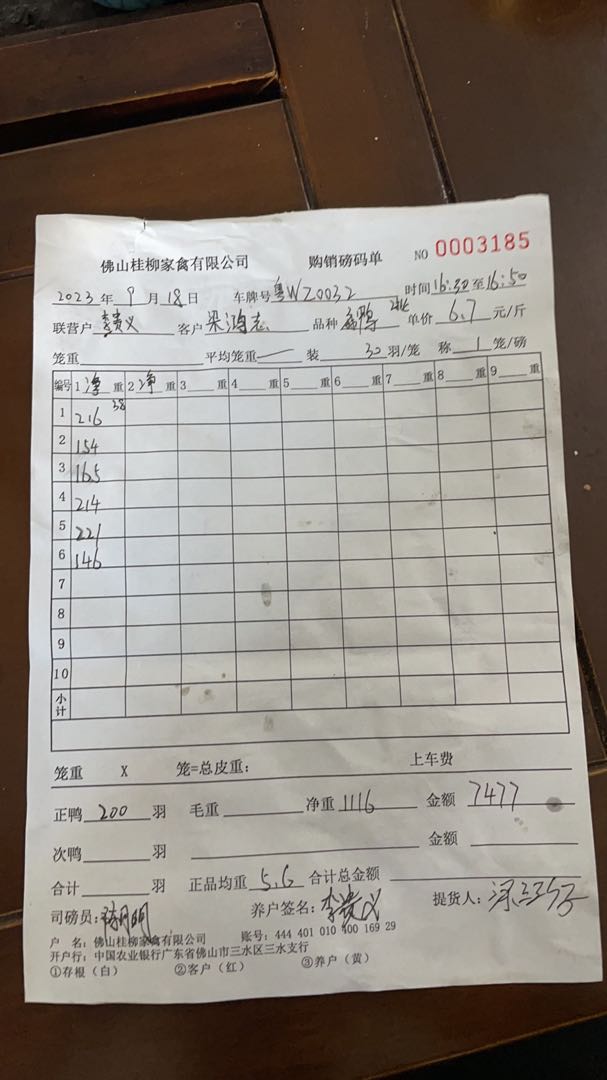 佛山桂柳家禽有限公司 购销磅码单 NO 0003185
2023年9月18日 车牌号 粤WZ0032 时间16:30至16:50
联营户 李贵义 客户 梁鸿志 品种 单价 6.7 元/斤
笼重 平均笼重 — 装 30 羽/笼 称 1 笼/磅
编号 1 净 重 2 净 重 3 重 4 重 5 重 6 重 7 重 8 重 9 重
1 216 38
2 154
3 165
4 214
5 221
6 146
7
8
9
10
小计
笼重 X 笼=总皮重： 上车费
正鸭 200 羽 毛重 净重 1116 金额 7477
次鸭 羽 金额
合计 羽 正品均重 5.6 合计总金额
司磅员： 养户签名：李贵义 提货人：
户 名：佛山桂柳家禽有限公司 账号：444 401 010 400 169 29
开户行：中国农业银行广东省佛山市三水区三水支行
①存根（白） ②客户（红） ③养户（黄）